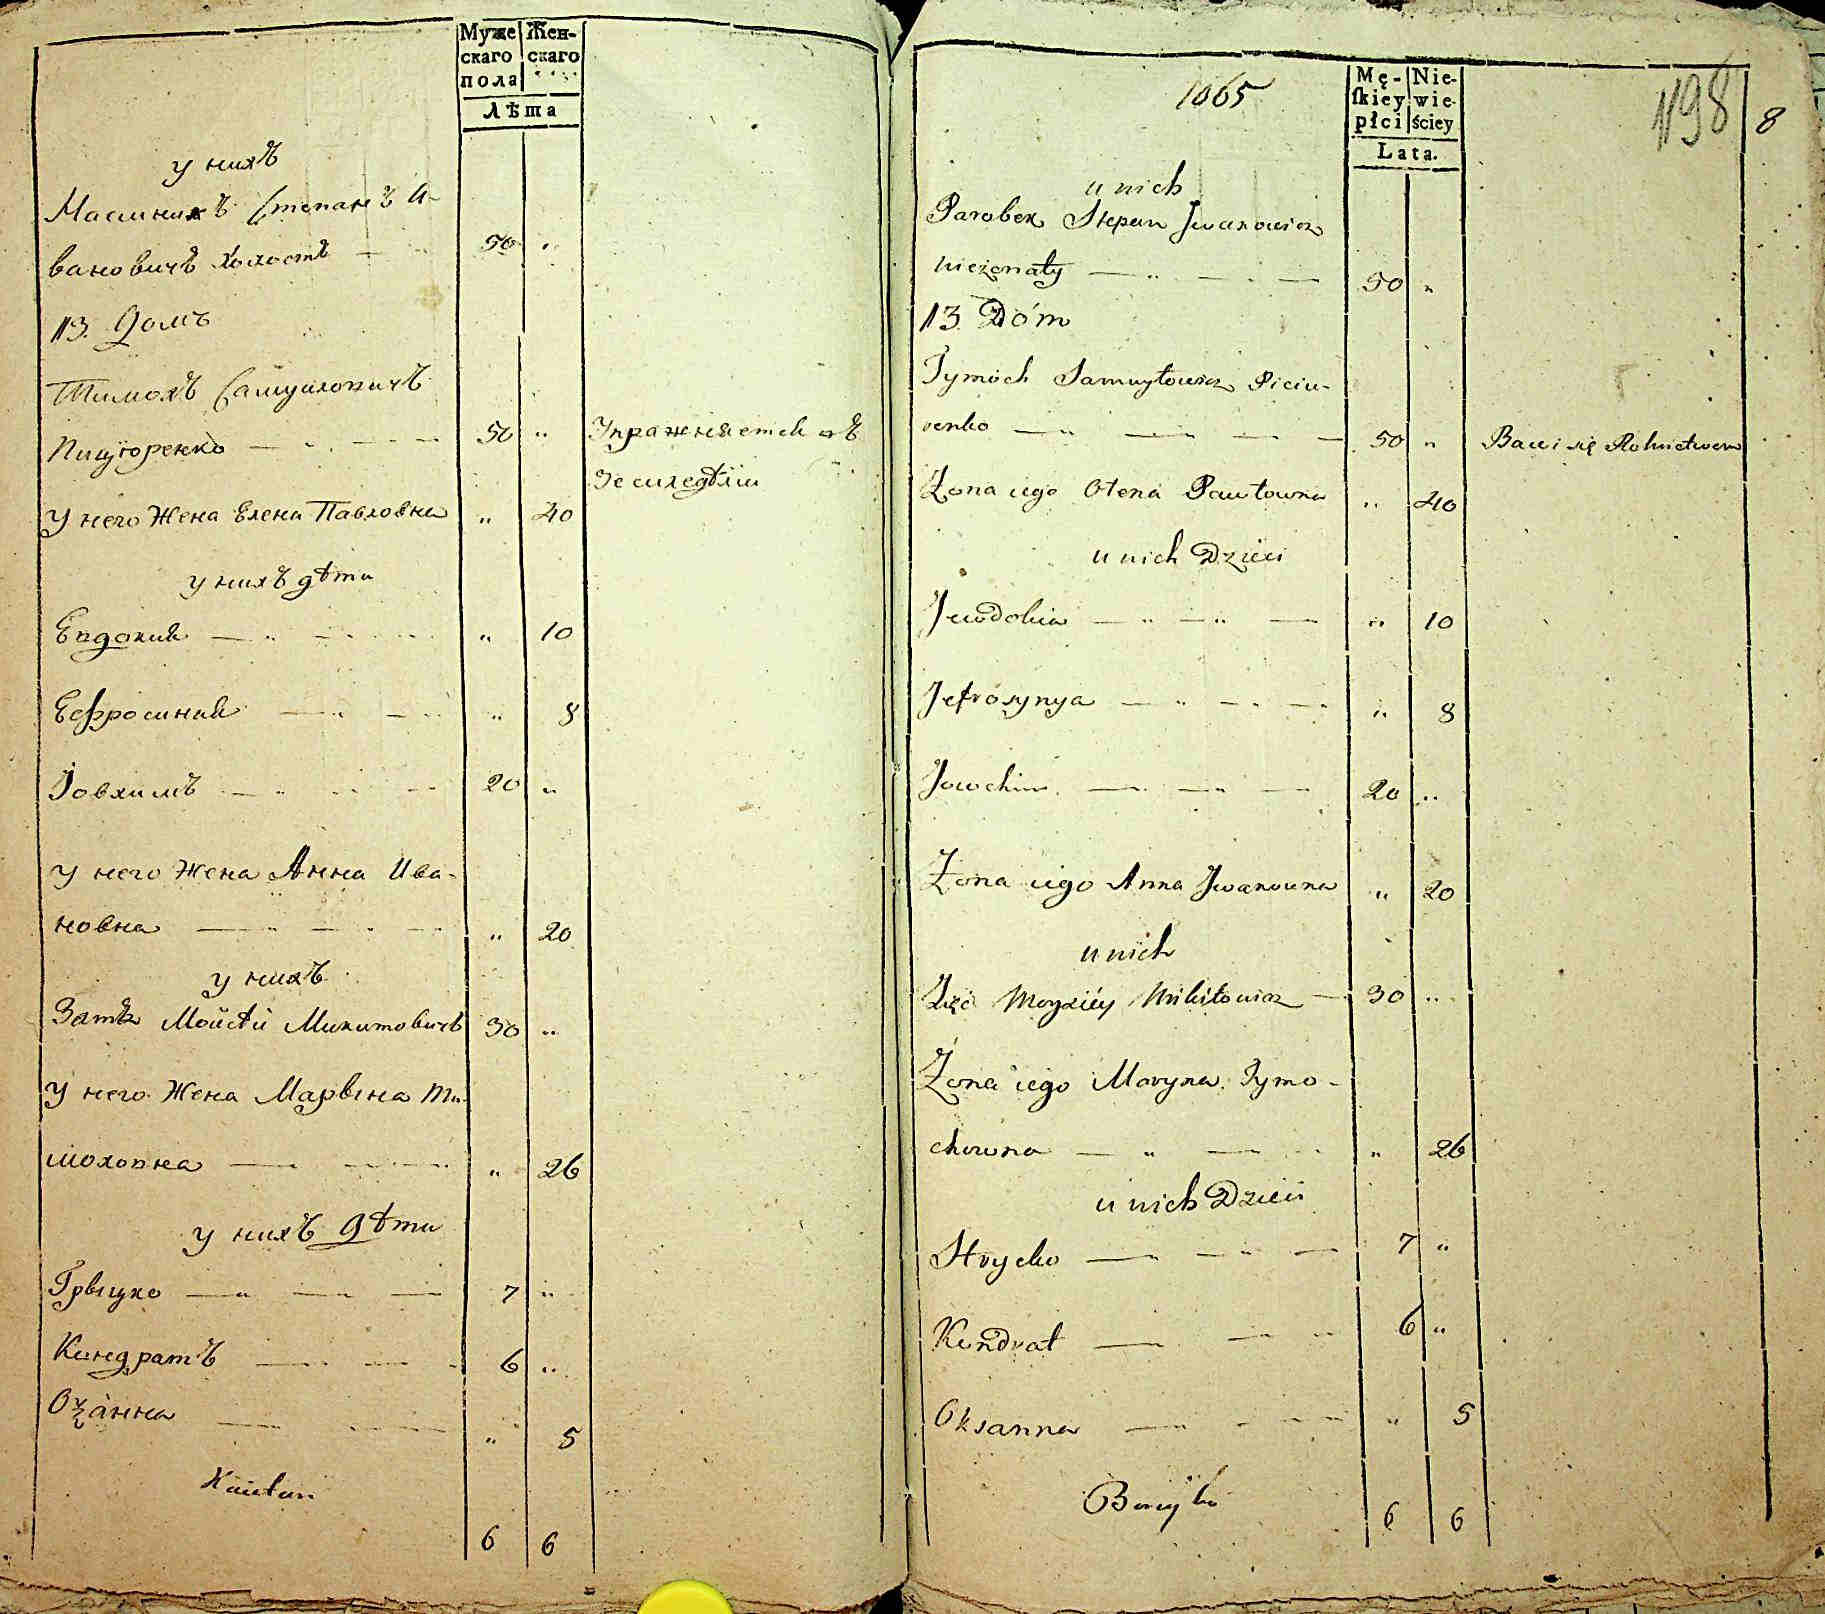 Муже Жен-
скаго скаго
пола
лѣта
у нихъ
Степанъ И-
вановичъ холостъ 50 "
113. Домъ
Тимохъ Самуиловичъ
Пицюренко 50 " Упражняется въ
земледѣліи
у него Жена Елена Павловна " 40
у нихъ дѣти
Евдокия " 10
Ефросиния " 8
Іовхимъ 20 "
у него Жена Анна Ива-
новна " 20
у нихъ
Зять Мойсѣй Микитовичъ 30 "
у него Жена Марына Ти-
моховна " 26
у нихъ дѣти
Грыцко 7 "
Кондратъ 6 "
Оѯанна " 5
Kaietan
6 6
1065
1198
8
Mę- Nie-
ſkiey wie-
płci ściey
Lata.
u nich
Parobek Stepan Jwanowicz
nieżonaty 50 "
113 Dóm
Tymoch Samuyłowicz Piciu-
renko 50 " Bawi się Rolnictwem
Żona iego Ołena Pawłowna " 40
u nich Dzieci
Jewdokia " 10
Jefrosynya " 8
Jowchim 20 "
Żona iego Anna Jwanowna " 20
u nich
Zięć Moysiéy Mikitowicz 30 "
Żona iego Maryna Tymo-
chowna " 26
u nich Dzieci
Hrycko 7 "
Kondrat 6 "
Oksanna " 5
6 6